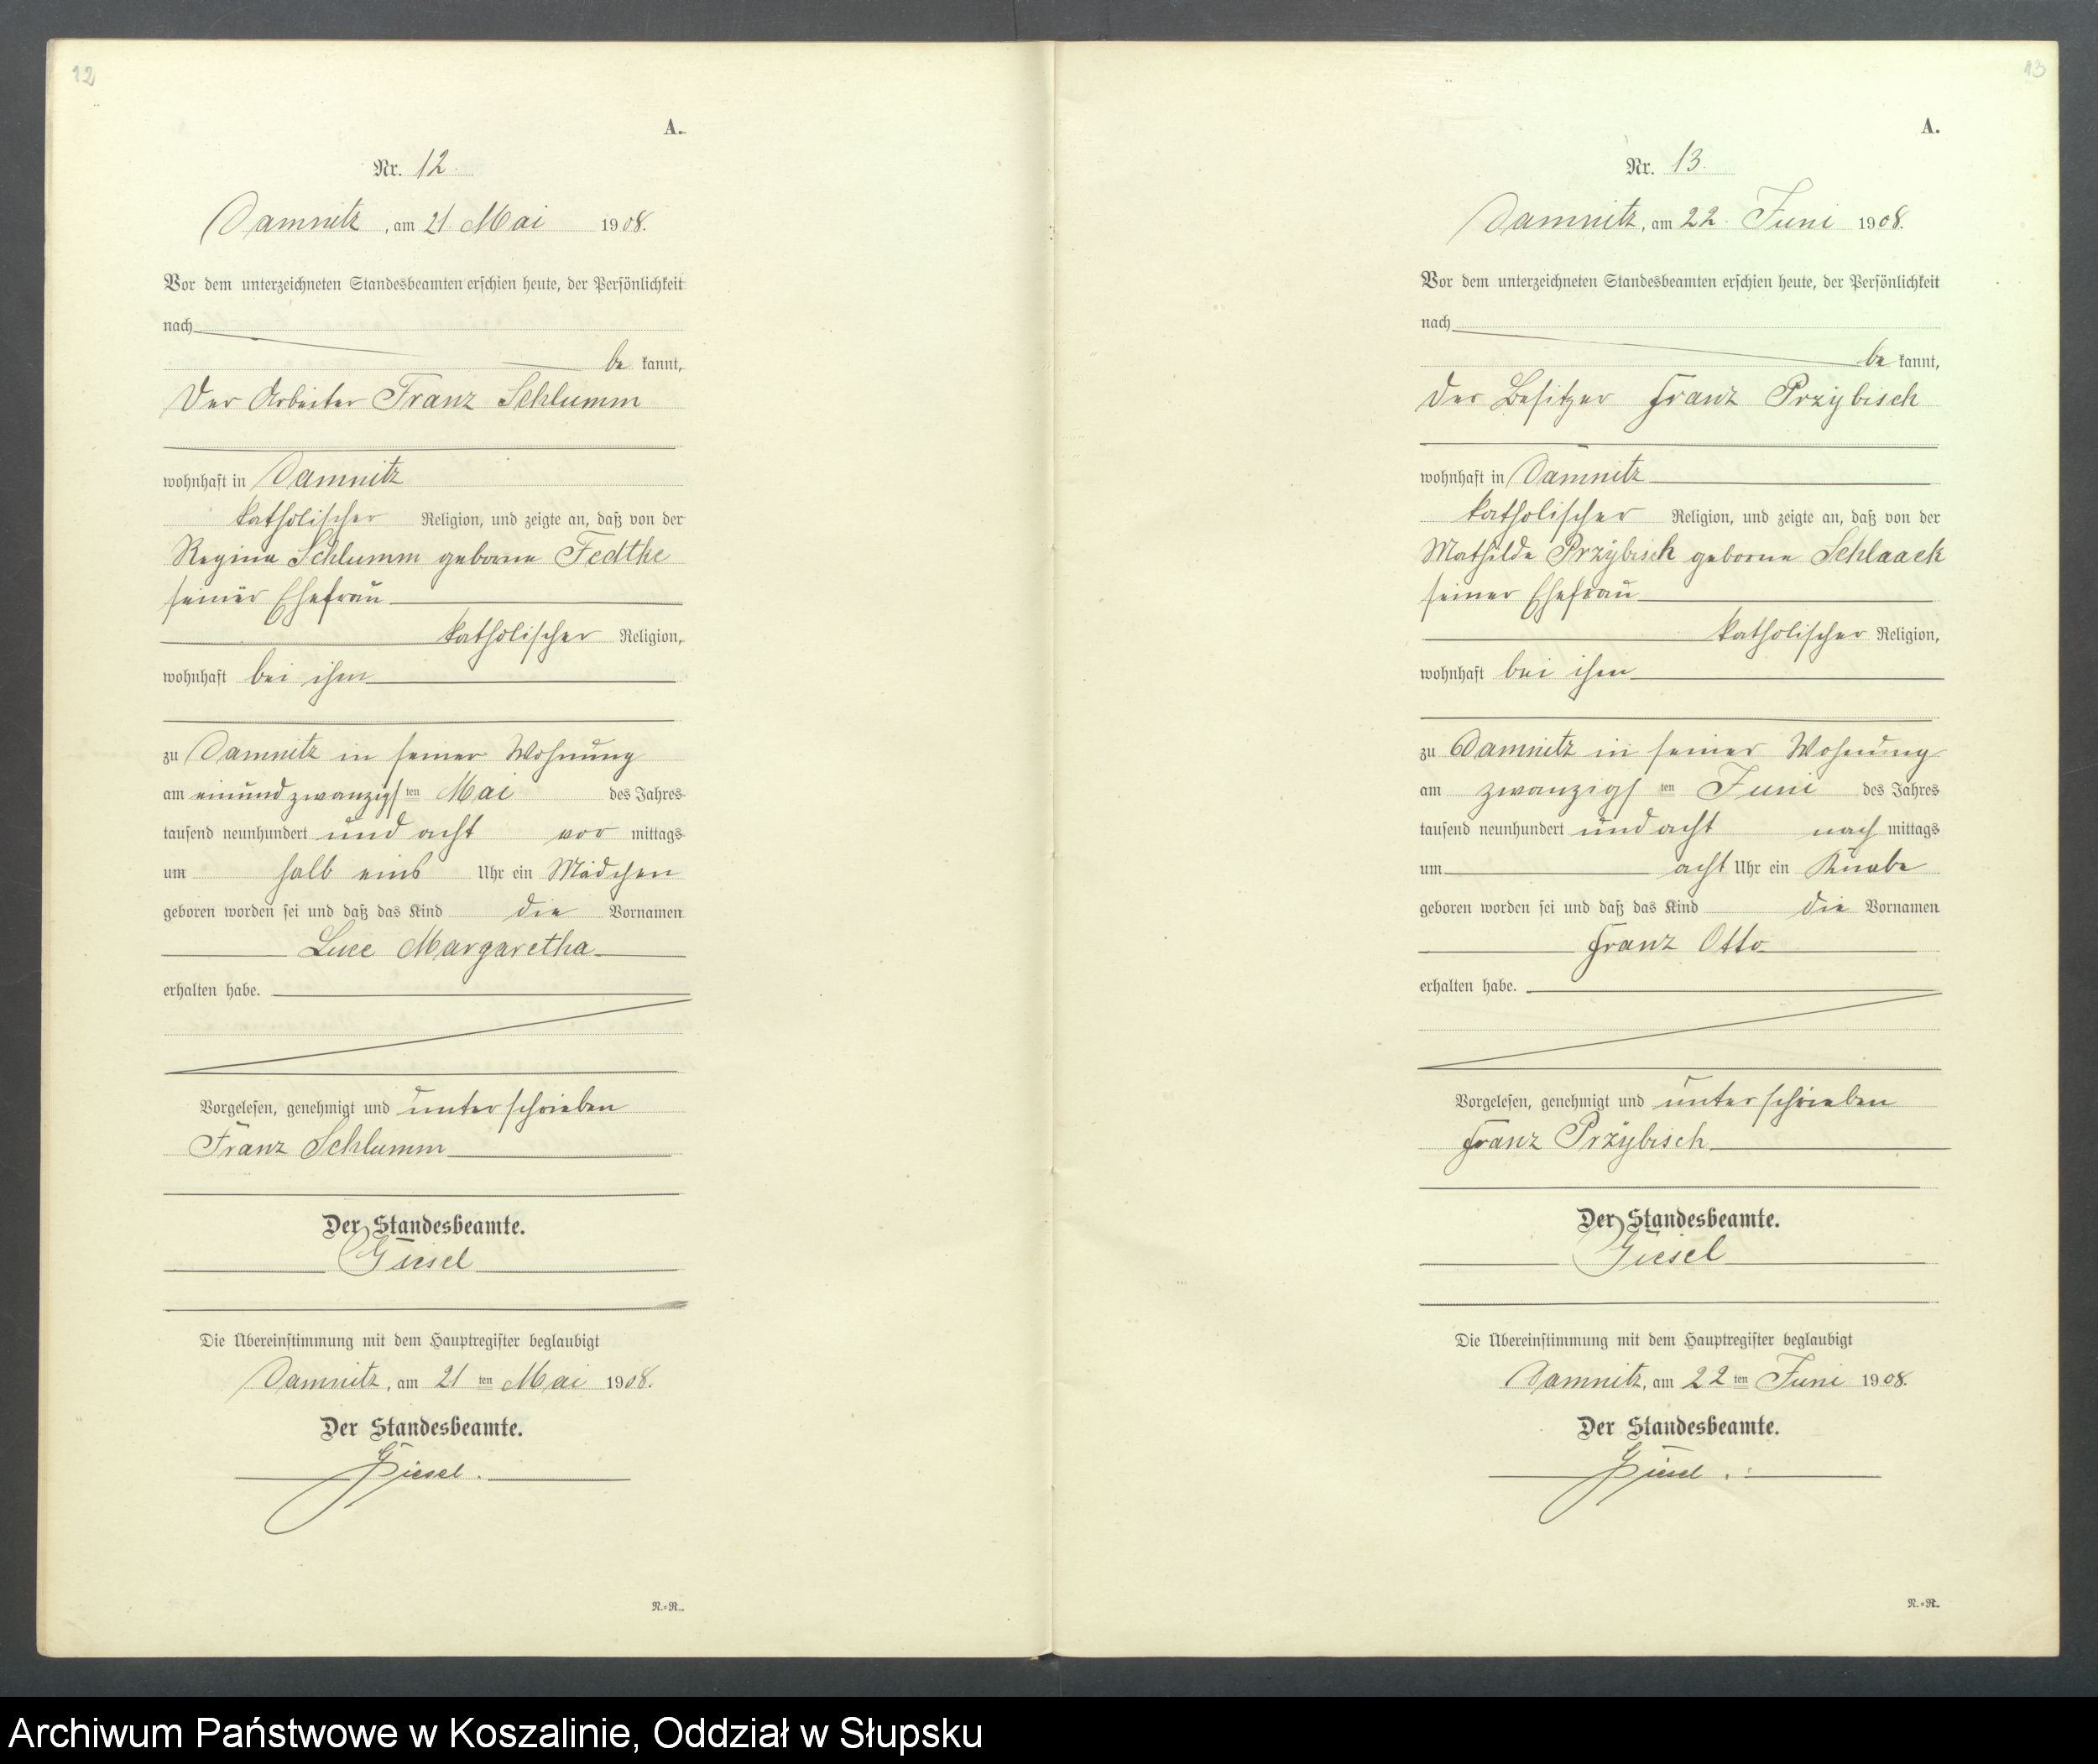 12
A.
Nr. 12.
Damnitz, am 21 Mai 1908.
Vor dem unterzeichneten Standesbeamten erschien heute, der Persönlichkeit
nach
be kannt,
Der Arbeiter Franz Schlumm
wohnhaft in Damnitz
katholischer Religion, und zeigte an, daß von der
Regina Schlumm geborne Fedtke
seiner Ehefrau
katholischer Religion,
wohnhaft bei ihm
zu Damnitz in seiner Wohnung
am einundzwanzigsten Mai des Jahres
tausend neunhundert und acht vor mittags
um halb eins Uhr ein Mädchen
geboren worden sei und daß das Kind die Vornamen
Luce Margaretha
erhalten habe.
Vorgelesen, genehmigt und unterschrieben
Franz Schlumm
Der Standesbeamte.
Giesel
Die Übereinstimmung mit dem Hauptregister beglaubigt
Damnitz, am 21 ten Mai 1908.
Der Standesbeamte.
Giesel.
N.=R.
13
A.
Nr. 13.
Damnitz, am 22. Juni 1908.
Vor dem unterzeichneten Standesbeamten erschien heute, der Persönlichkeit
nach
be kannt,
Der Besitzer Franz Przybisch
wohnhaft in Damnitz
katholischer Religion, und zeigte an, daß von der
Mathilde Przybisch geborne Schlaack
seiner Ehefrau
katholischer Religion,
wohnhaft bei ihm
zu Damnitz in seiner Wohnung
am zwanzigsten Juni des Jahres
tausend neunhundert und acht nach mittags
um acht Uhr ein Knabe
geboren worden sei und daß das Kind die Vornamen
Franz Otto
erhalten habe.
Vorgelesen, genehmigt und unterschrieben
Franz Przybisch
Der Standesbeamte.
Giesel
Die Übereinstimmung mit dem Hauptregister beglaubigt
Damnitz, am 22 ten Juni 1908.
Der Standesbeamte.
Giesel.
N.=R.
Archiwum Państwowe w Koszalinie, Oddział w Słupsku